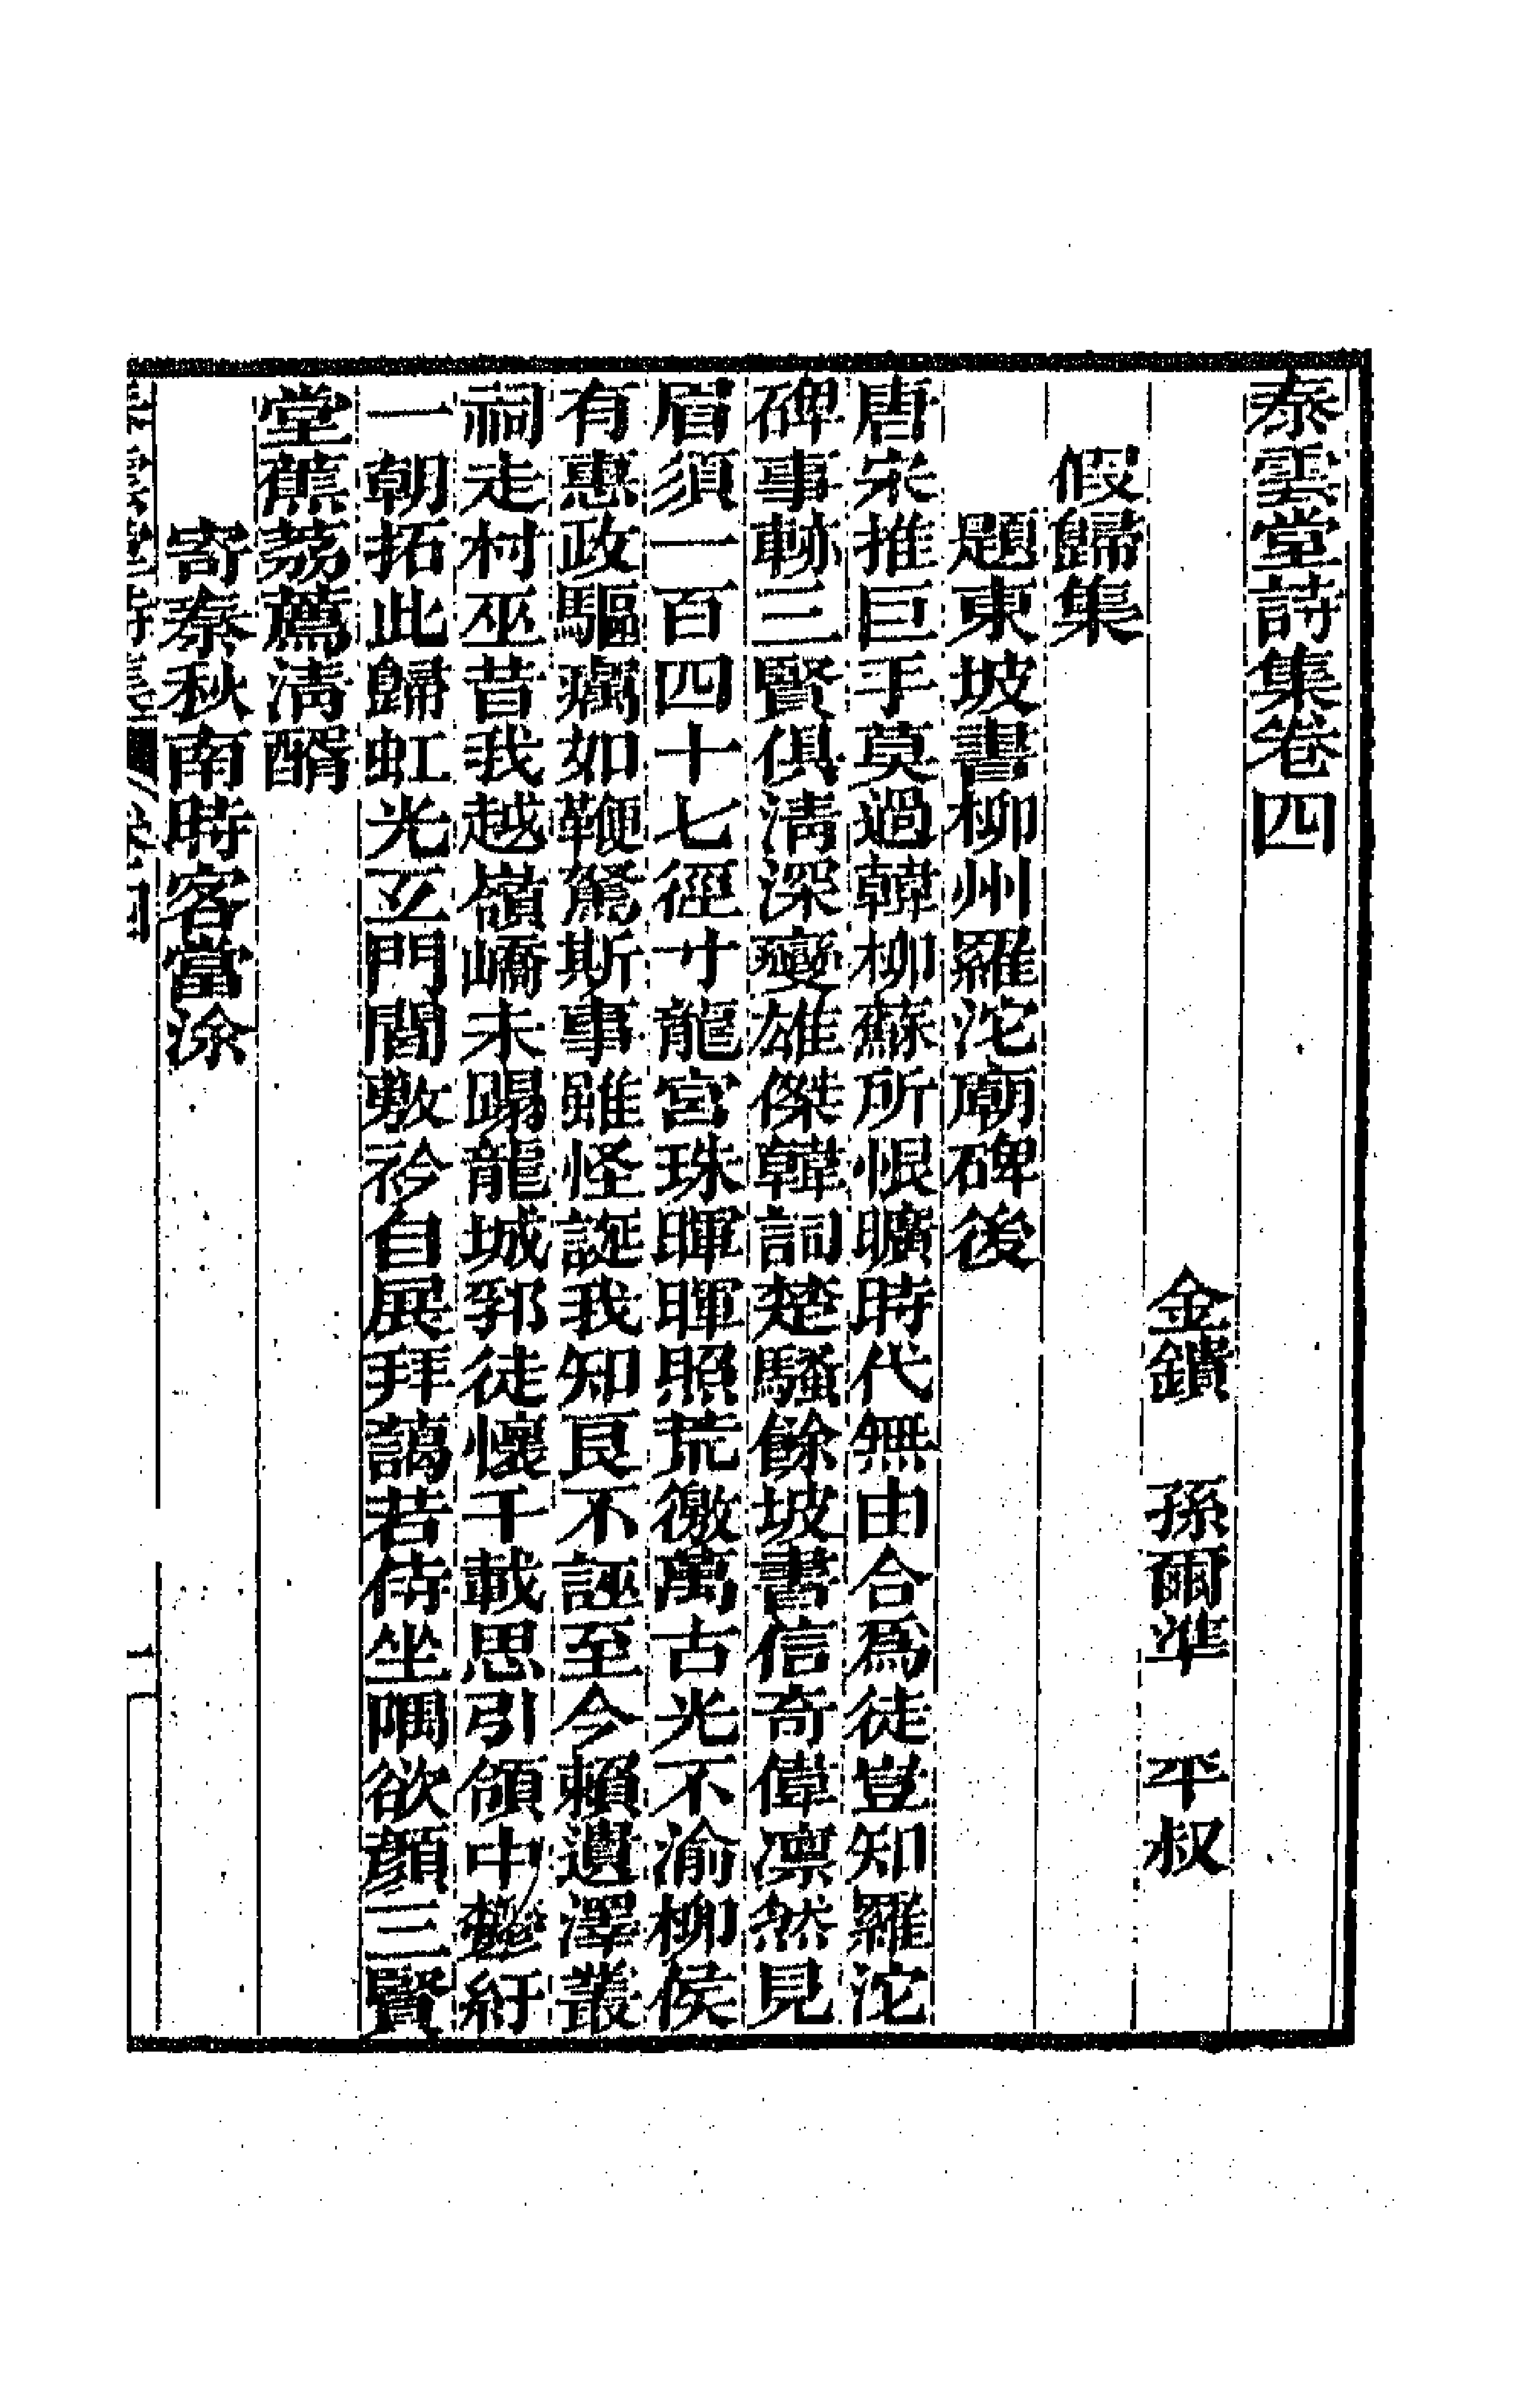 泰雲堂詩集卷四
金鐀　孫爾準　平叔
假歸集
題東坡書柳州羅沱廟碑後
唐宋推巨手莫過韓柳蘇所恨曠時代無由合為徒豈知羅沱
碑事勣三賢俱淸深變雄傑韓詞楚騷餘坡書信奇偉凛然見
眉須一百四十七徑寸龍宮珠暉暉照荒徼萬古光不渝柳侯
有惠政驅癘如鞭駑斯事雖怪誕我知良不誣至今賴遺澤叢
祠走村巫昔我越嶺嶠未蹋龍城郛徒懷千載思引領中鬱紆
一朝拓此歸虹光亙門閭敷衿自展拜謁若侍坐隅欲顏三賢
堂蕉荔薦淸醑
寄秦秋南時客當涂